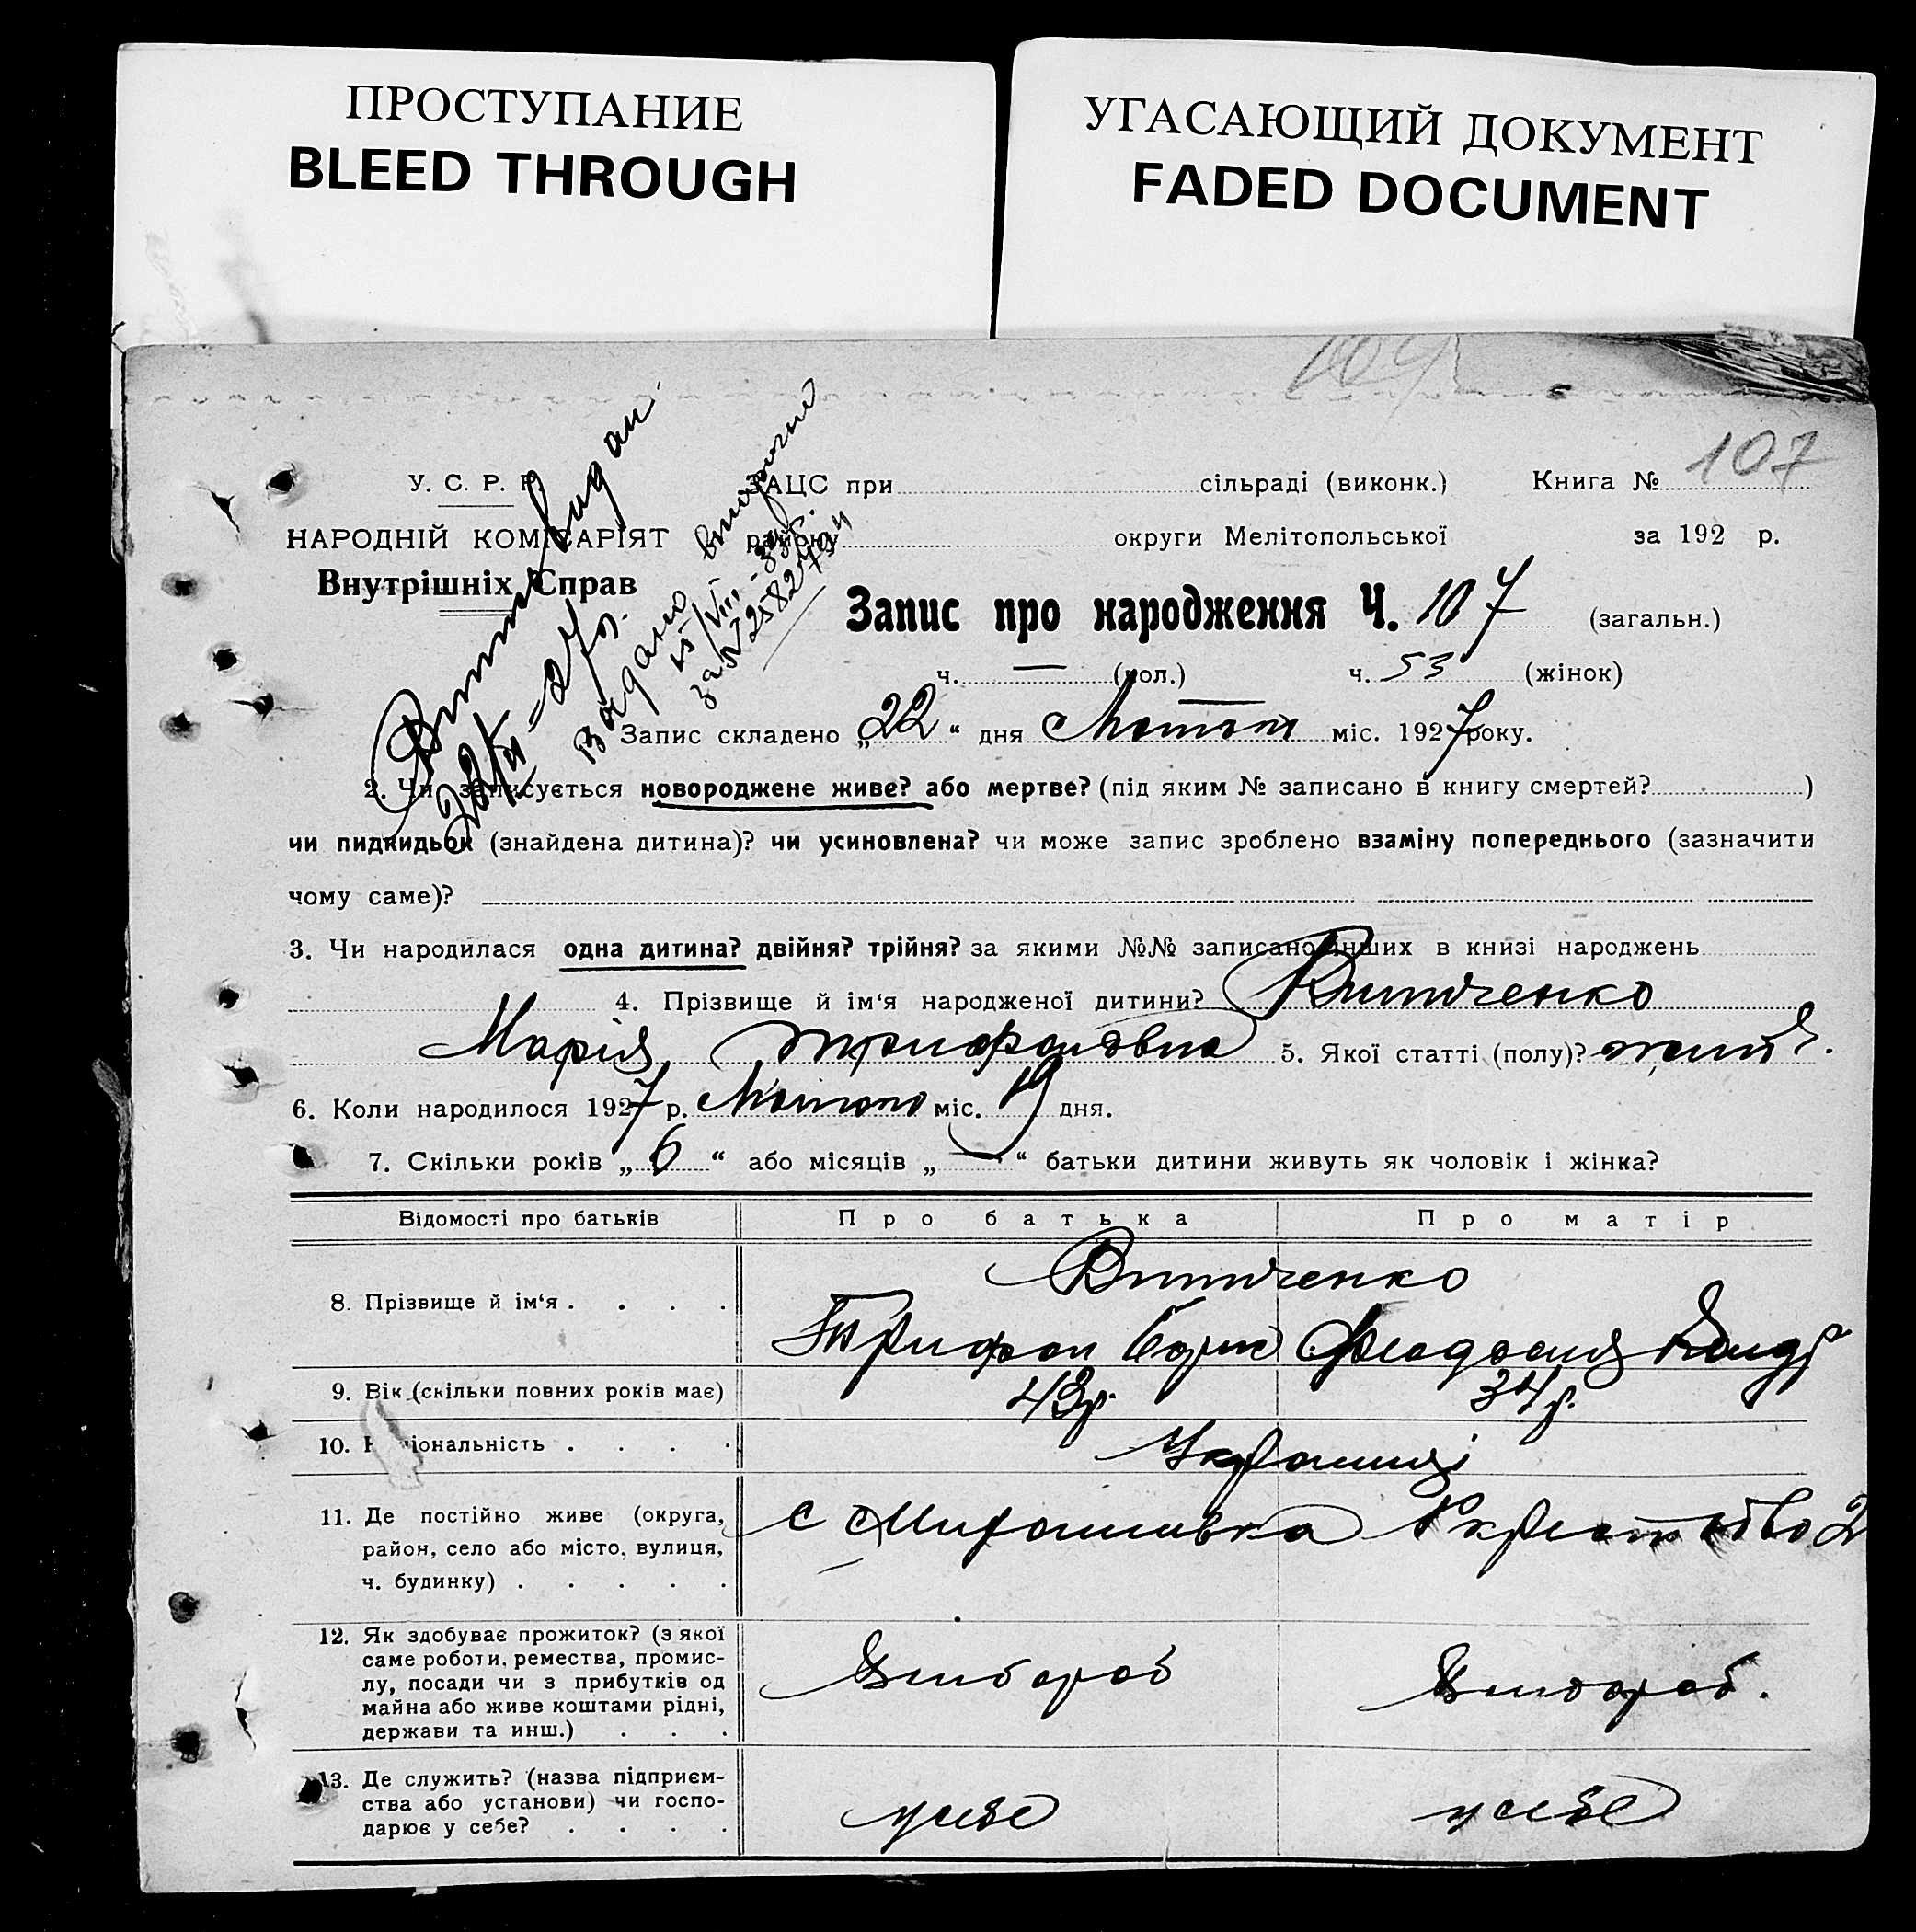 ПРОСТУПАНИЕ
BLEED THROUGH
УГАСАЮЩИЙ ДОКУМЕНТ
FADED DOCUMENT
107
У. С. Р. Р.
НАРОДНІЙ КОМІСАРІЯТ
Внутрішніх Справ
ЗАЦС при сільраді (виконк.) Книга №
району округи Мелітопольської за 192 р.
Видано вторично
15/VIII
за №
Запис про народження Ч. 107 (загальн.)
ч. — (чол.) ч. 53 (жінок)
Запис складено „22“ дня Лютого міс. 1927 року.
2. Чи записується новороджене живе? або мертве? (під яким № записано в книгу смертей? )
чи пидкидьок (знайдена дитина)? чи усиновлена? чи може запис зроблено взаміну попереднього (зазначити
чому саме)?
3. Чи народилася одна дитина? двійня? трійня? за якими №№ записано инших в книзі народжень
4. Прізвище й ім‘я народженої дитини?
Марія Трифоновна 5. Якої статті (полу)?
6. Коли народилося 1927 р. Лютого міс. 19 дня.
7. Скільки років „6“ або місяців „—“ батьки дитини живуть як чоловік і жінка?
Відомості про батьків Про батька Про матір
8. Прізвище й ім‘я . . . .
Трифон
9. Вік (скільки повних років має) 43 р. 34 р.
10. Національність . . . . Українці
11. Де постійно живе (округа,
район, село або місто, вулиця,
ч. будинку) . . . .
с
12. Як здобуває прожиток? (з якої
саме роботи, ремества, промис-
лу, посади чи з прибутків од
майна або живе коштами рідні,
держави та инш.) . . .
Хлібороб Хлібороб.
13. Де служить? (назва підприєм-
ства або установи) чи госпо-
дарює у себе? . . . .
у себе у себе